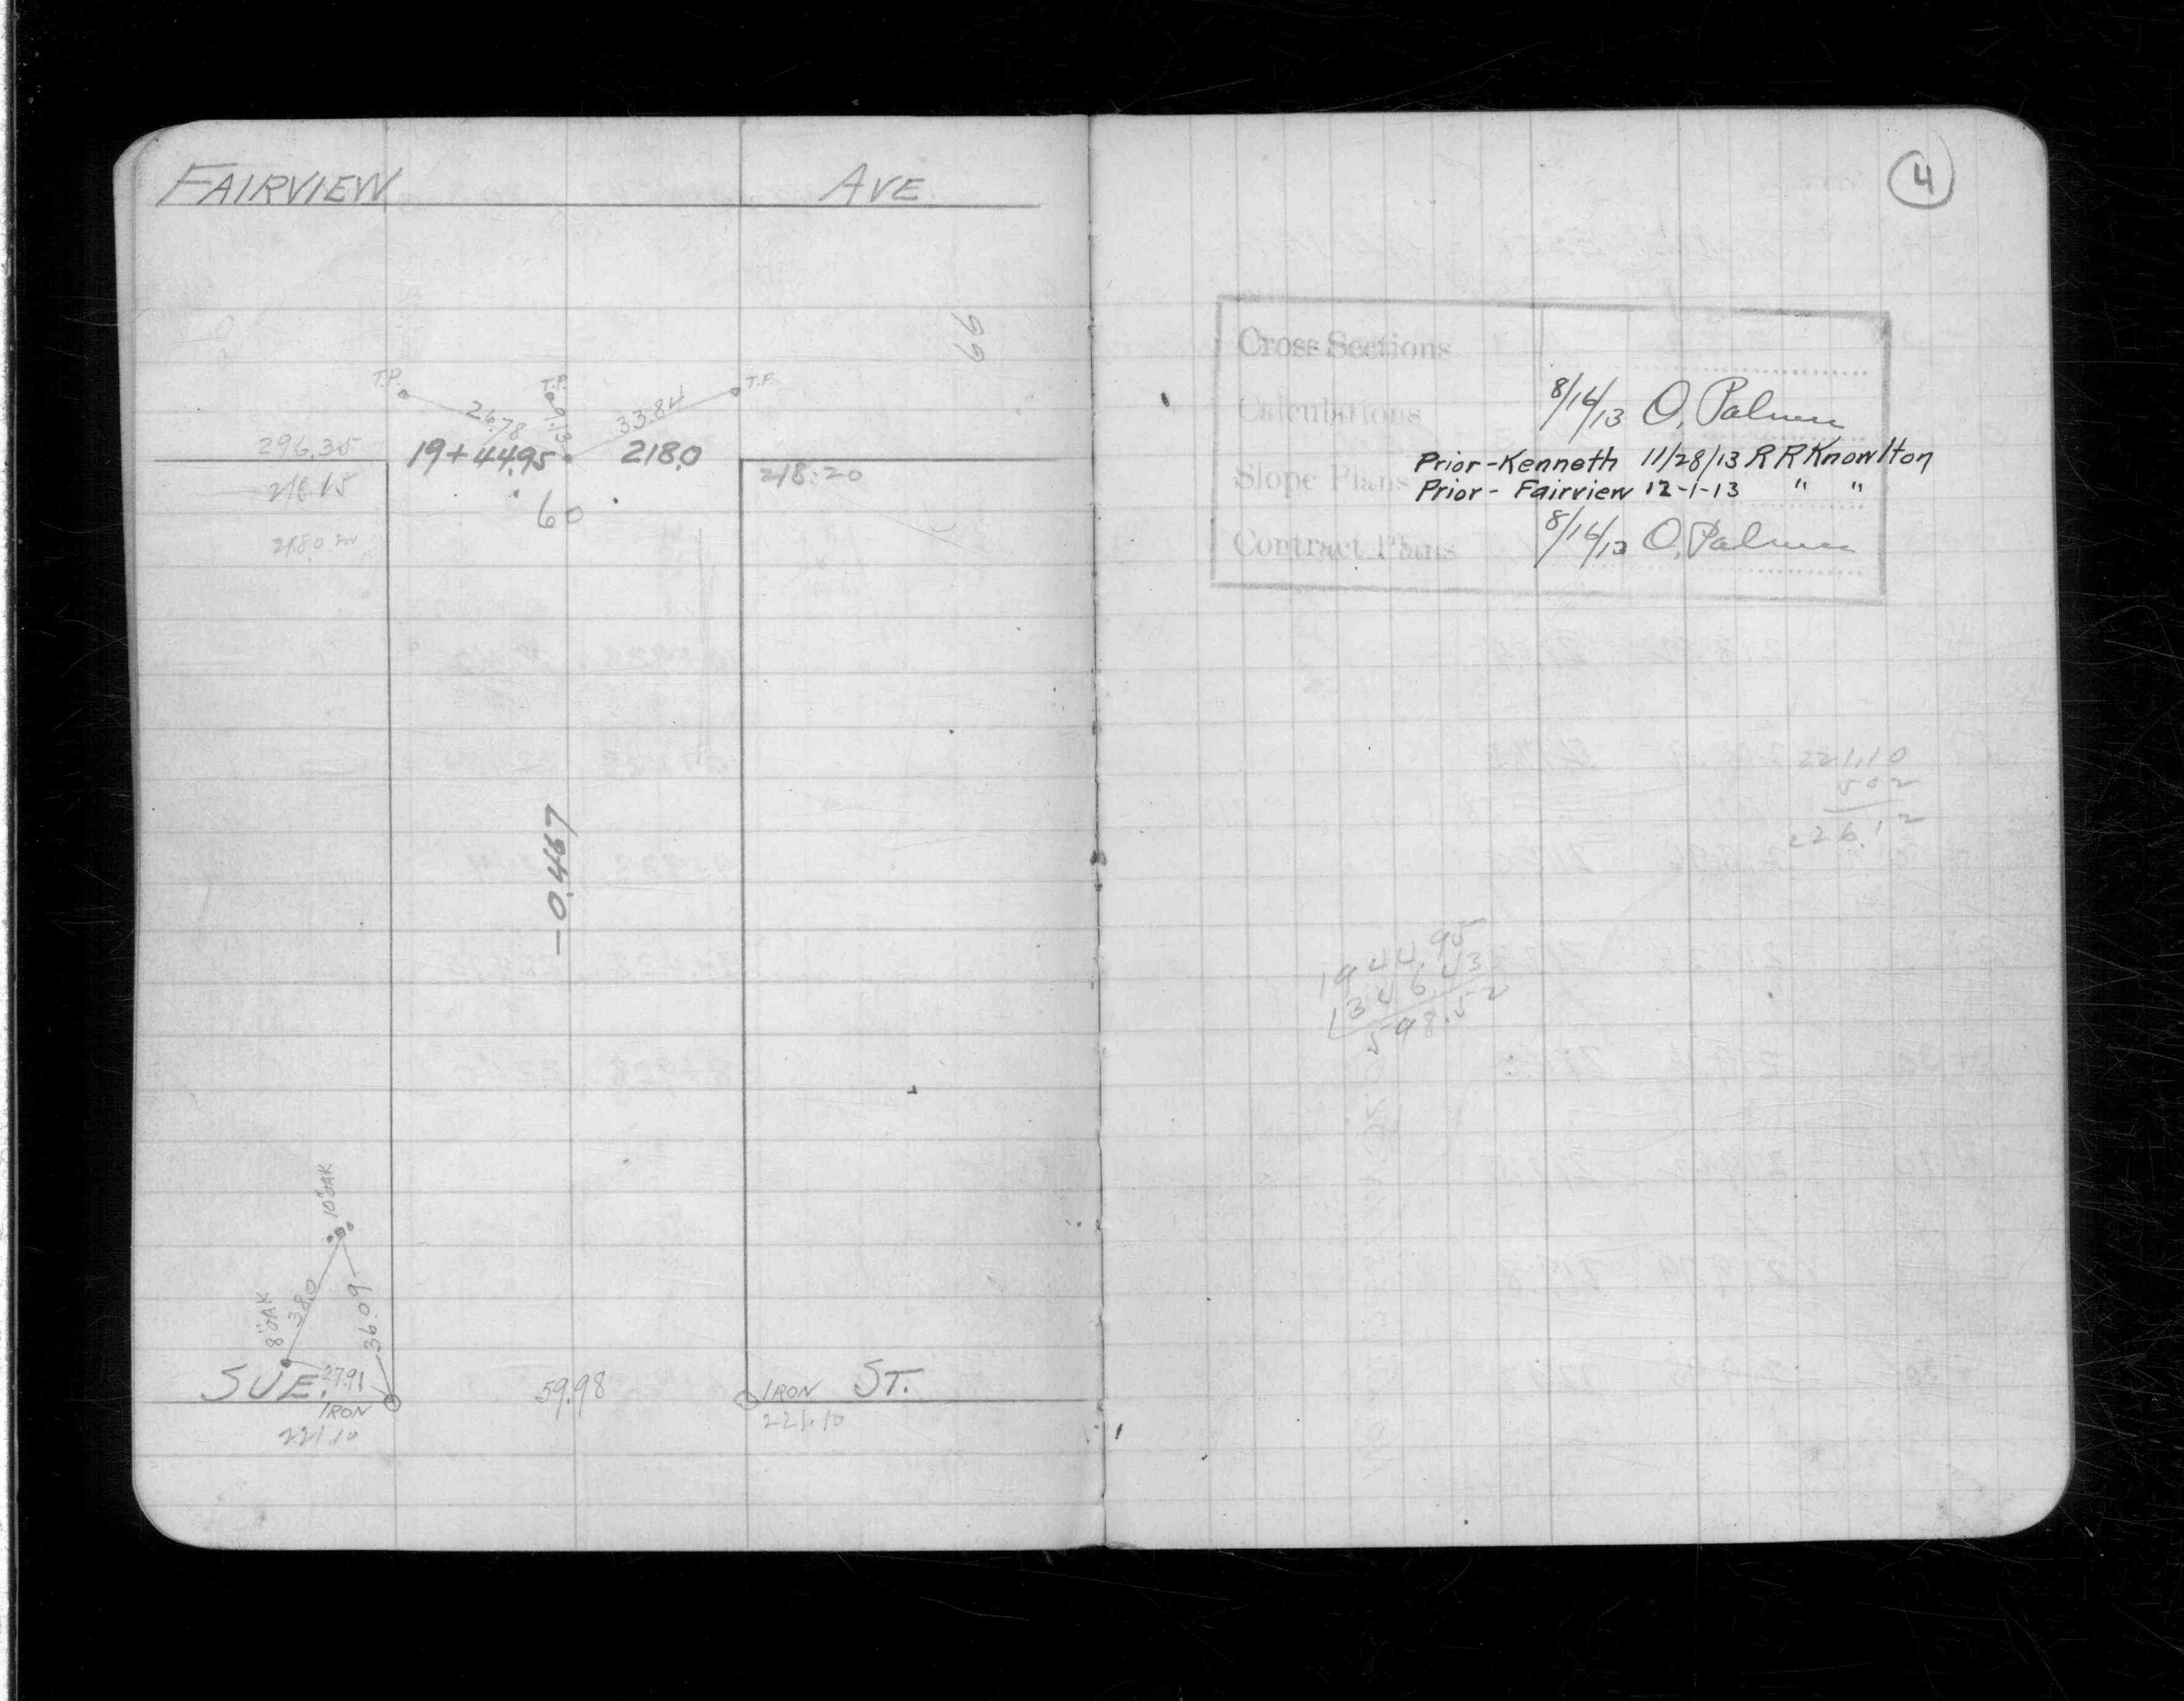 FAIRVIEW AVE.
66
T.P. T.P. T.P.
26.78 9.13 33.84
296.35 19+44.95 218.0
218.15 218.20
60
218.0
-0.467
10"OAK
8"OAK 38.0 36.09
SUE. 27.91 59.98 IRON ST.
IRON 221.10
221.10
4
Cross Sections
Calculations 8/16/13 O. Palmer
Prior-Kenneth 11/28/13 R R Knowlton
Slope Plans
Prior- Fairview 12-1-13 " "
Contract Plans 8/16/13 O. Palmer
221.10
502
226.12
1944.95
1346.43
598.52